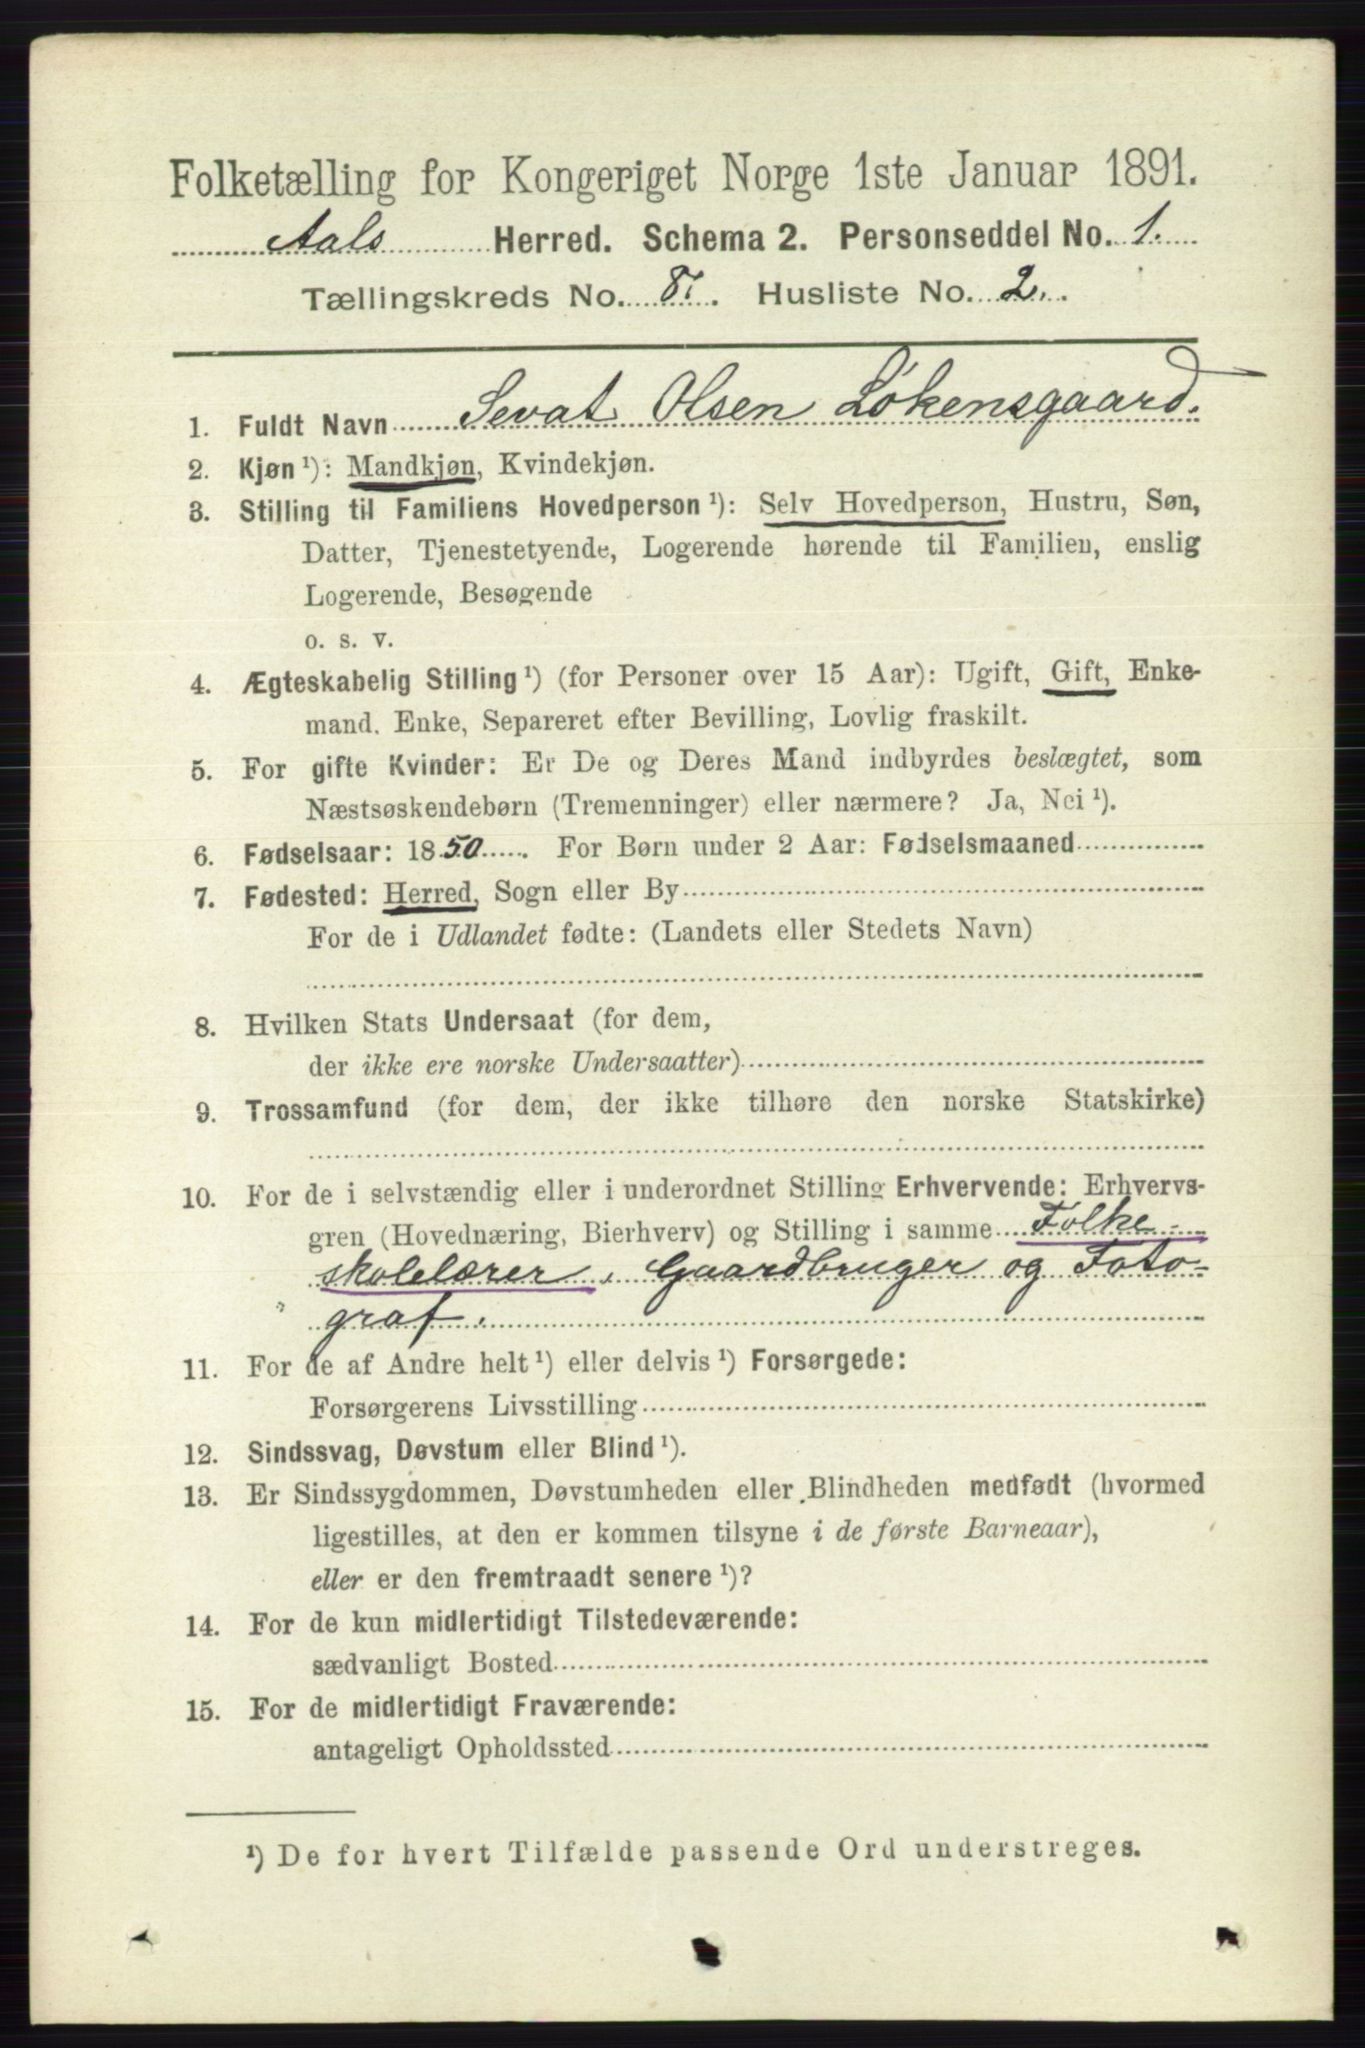 Folketælling for Kongeriget Norge 1ste Januar 1891.
Aals Herred. Schema 2. Personseddel No. 1.
Tællingskreds No. 8. Husliste No. 2.
1. Fuldt Navn Sevat Olsen Løkensgaard.
2. Kjøn ¹): Mandkjøn, Kvindekjøn.
3. Stilling til Familiens Hovedperson ¹): Selv Hovedperson, Hustru, Søn,
Datter, Tjenestetyende, Logerende hørende til Familien, enslig
Logerende, Besøgende
o. s. v.
4. Ægteskabelig Stilling ¹) (for Personer over 15 Aar): Ugift, Gift, Enke-
mand, Enke, Separeret efter Bevilling, Lovlig fraskilt.
5. For gifte Kvinder: Er De og Deres Mand indbyrdes beslægtet, som
Næstsøskendebørn (Tremenninger) eller nærmere? Ja, Nei ¹).
6. Fødselsaar: 1850. For Børn under 2 Aar: Fødselsmaaned
7. Fødested: Herred, Sogn eller By
For de i Udlandet fødte: (Landets eller Stedets Navn)
8. Hvilken Stats Undersaat (for dem,
der ikke ere norske Undersaatter)
9. Trossamfund (for dem, der ikke tilhøre den norske Statskirke)
10. For de i selvstændig eller i underordnet Stilling Erhvervende: Erhvervs-
gren (Hovednæring, Bierhverv) og Stilling i samme Folke-
skolelærer, Gaardbruger og Foto-
graf.
11. For de af Andre helt ¹) eller delvis ¹) Forsørgede:
Forsørgerens Livsstilling
12. Sindssvag, Døvstum eller Blind ¹).
13. Er Sindssygdommen, Døvstumheden eller Blindheden medfødt (hvormed
ligestilles, at den er kommen tilsyne i de første Barneaar),
eller er den fremtraadt senere ¹)?
14. For de kun midlertidigt Tilstedeværende:
sædvanligt Bosted
15. For de midlertidigt Fraværende:
antageligt Opholdssted
¹) De for hvert Tilfælde passende Ord understreges.